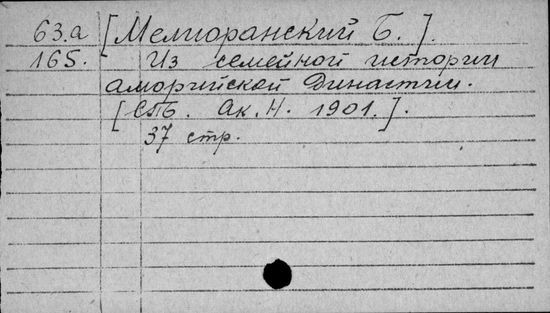 63.а [Мелиоранский Б.].
165. Из семейной истории
аморийской династии.
[СПБ. Ак. Н. 1901.].
37 стр.